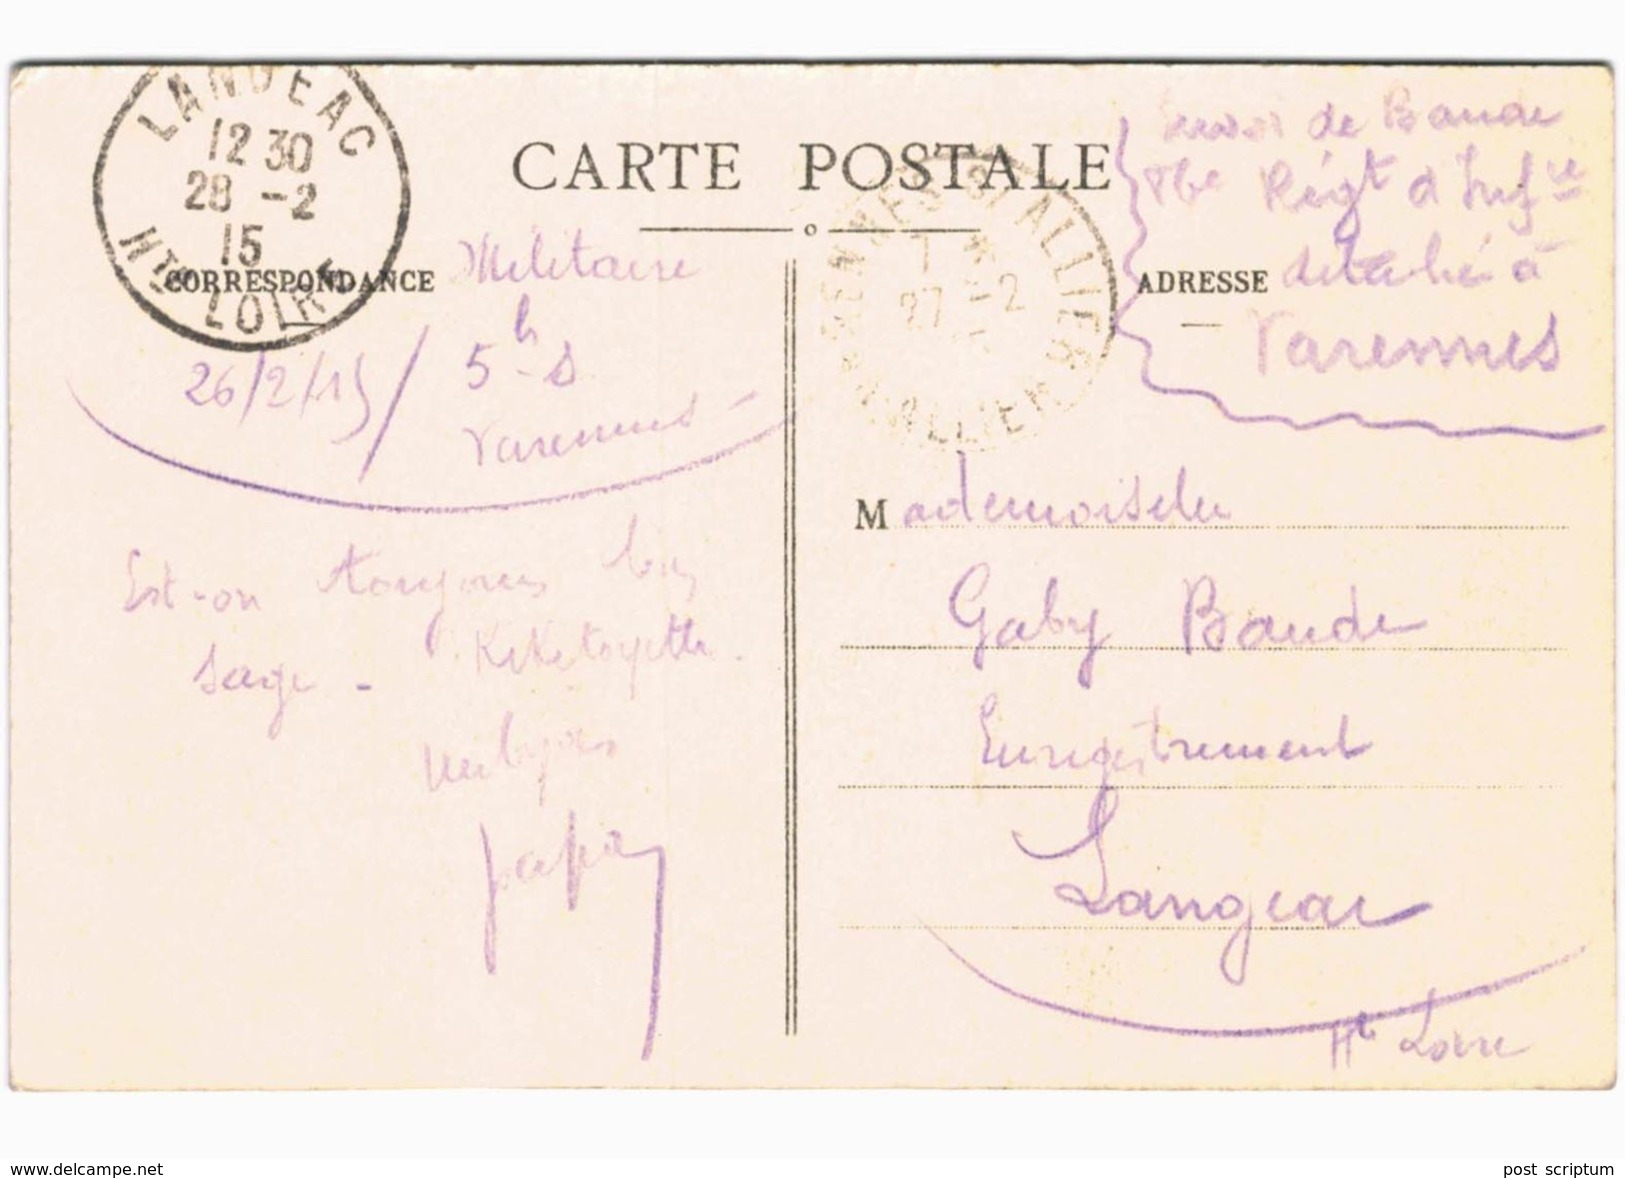 LANGEAC
12 30
28 -2
15
Hte LOIRE
CARTE POSTALE
VARENNES-S/-ALLIER
7
27 -2
ALLIER
de Baude
86e Régt d'Infie
détaché à
Varennes
CORRESPONDANCE
Militaire
ADRESSE
26/2/15/ 5h s
Varennes -
Est-on toujours bien
sage - Kiketoyette.
Mil bijous
papa
Mademoiselle
Gaby Baude
Enregistrement
Langeac
Hte Loire
www.delcampe.net
post scriptum